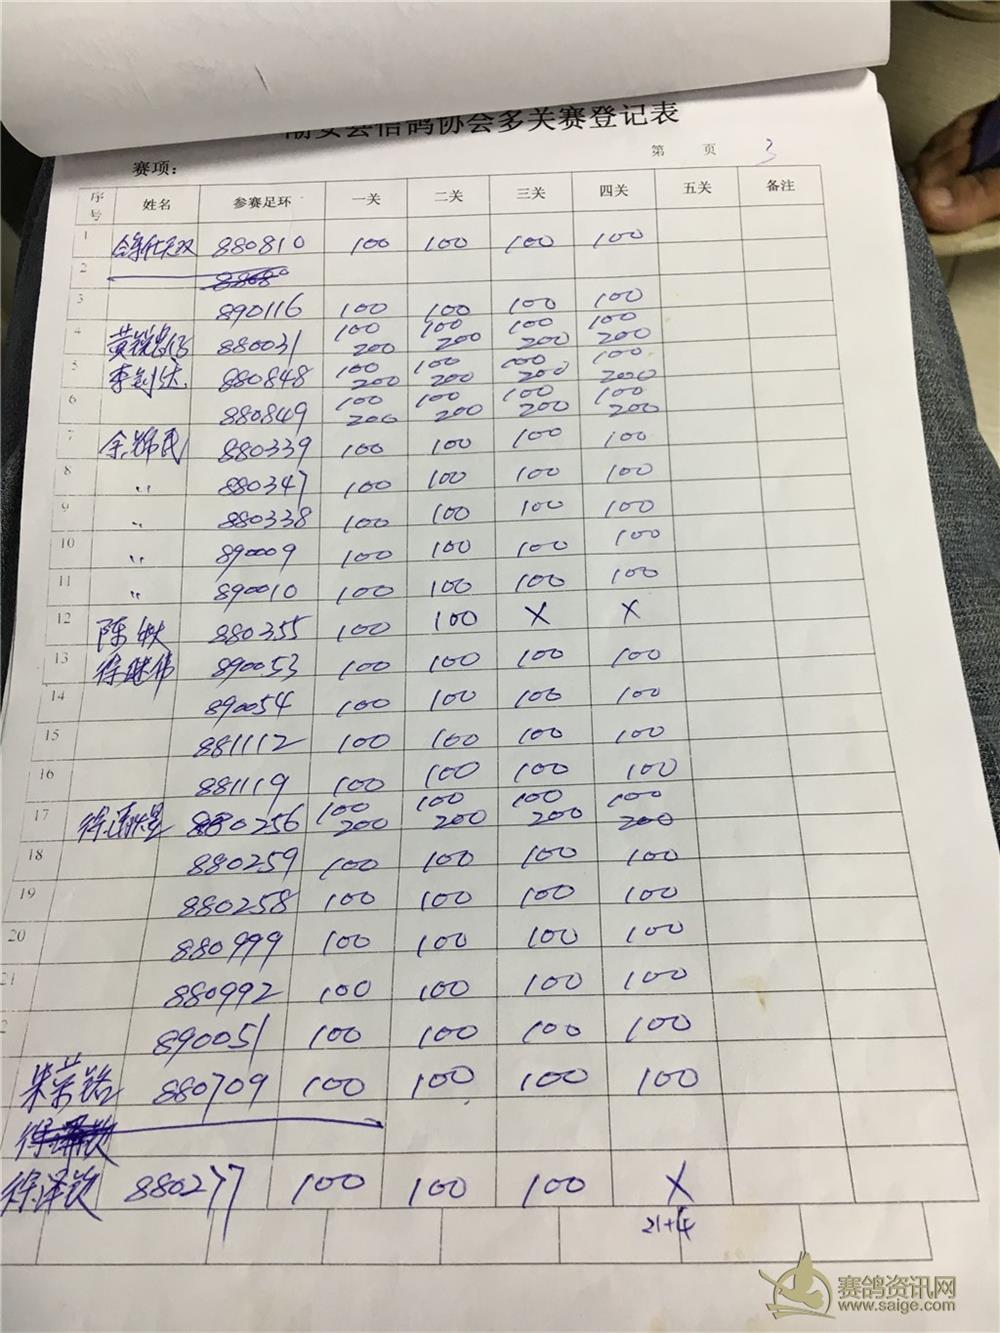 潮安县信鸽协会多关赛登记表
赛项： 第 页 3
序号 姓名 参赛足环 一关 二关 三关 四关 五关 备注
1 880810 100 100 100 100
2
3 890116 100 100 100 100
4 880031 100 200 100 200 100 200 100 200
5 李剑达 880848 100 200 100 200 100 200 100 200
6 880849 100 200 100 200 100 200 100 200
7 余锦民 880339 100 100 100 100
8 〃 880347 100 100 100 100
9 〃 880338 100 100 100 100
10 〃 890009 100 100 100 100
11 〃 890010 100 100 100 100
12 陈 880355 100 100 X X
13 徐继伟 890053 100 100 100 100
14 890054 100 100 100 100
15 881112 100 100 100 100
16 881119 100 100 100 100
17 880256 100 200 100 200 100 200 100 200
18 880259 100 100 100 100
19 880258 100 100 100 100
20 880999 100 100 100 100
21 880992 100 100 100 100
2 890051 100 100 100 100
朱荣铭 880709 100 100 100 100
徐泽钦 880277 100 100 100 X
21+4
赛鸽资讯网
www.saige.com